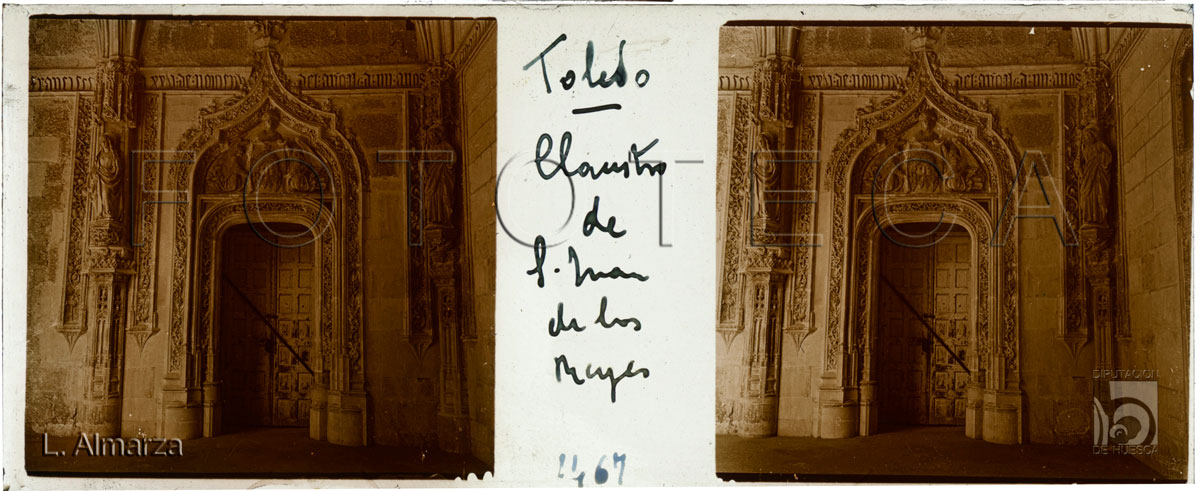 Toledo
Claustro
de
S. Juan
de los
Reyes
67
FOTOTECA
L. Almarza
DIPUTACIÓN
DE HUESCA